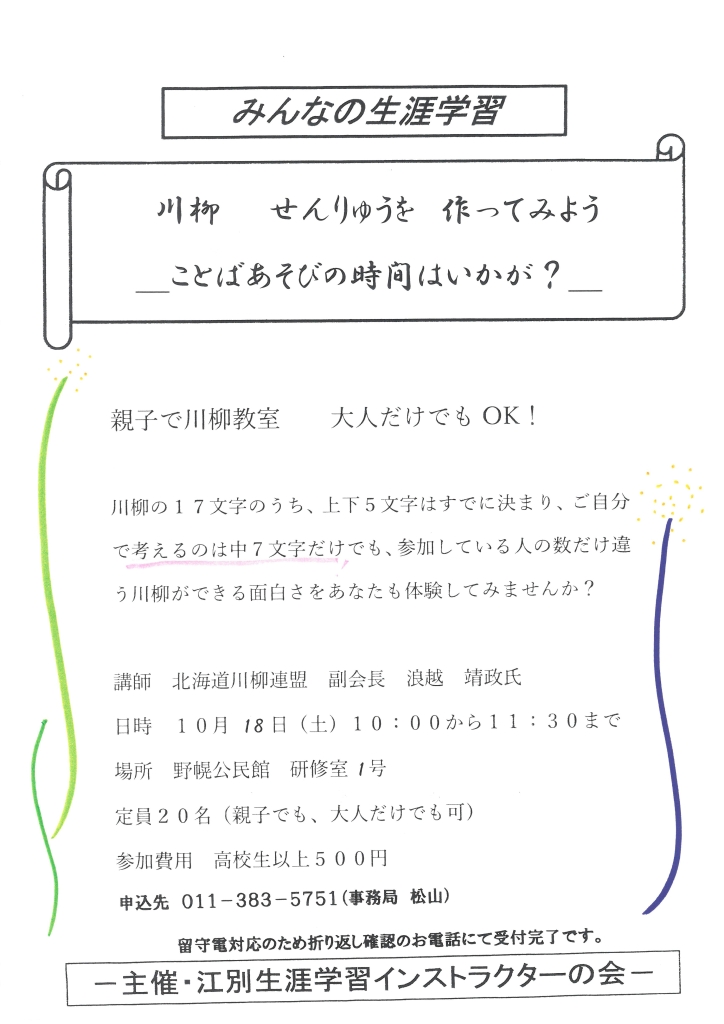 みんなの生涯学習
川柳　せんりゅうを　作ってみよう
＿ことばあそびの時間はいかが？＿
親子で川柳教室　　大人だけでも OK！
川柳の１７文字のうち、上下５文字はすでに決まり、ご自分
で考えるのは中７文字だけでも、参加している人の数だけ違
う川柳ができる面白さをあなたも体験してみませんか？
講師　北海道川柳連盟　副会長　浪越　靖政氏
日時　１０月 18 日（土）１０：００から１１：３０まで
場所　野幌公民館　研修室 1号
定員２０名（親子でも、大人だけでも可）
参加費用　高校生以上５００円
申込先　011－383－5751(事務局　松山)
留守電対応のため折り返し確認のお電話にて受付完了です。
－主催・江別生涯学習インストラクターの会－